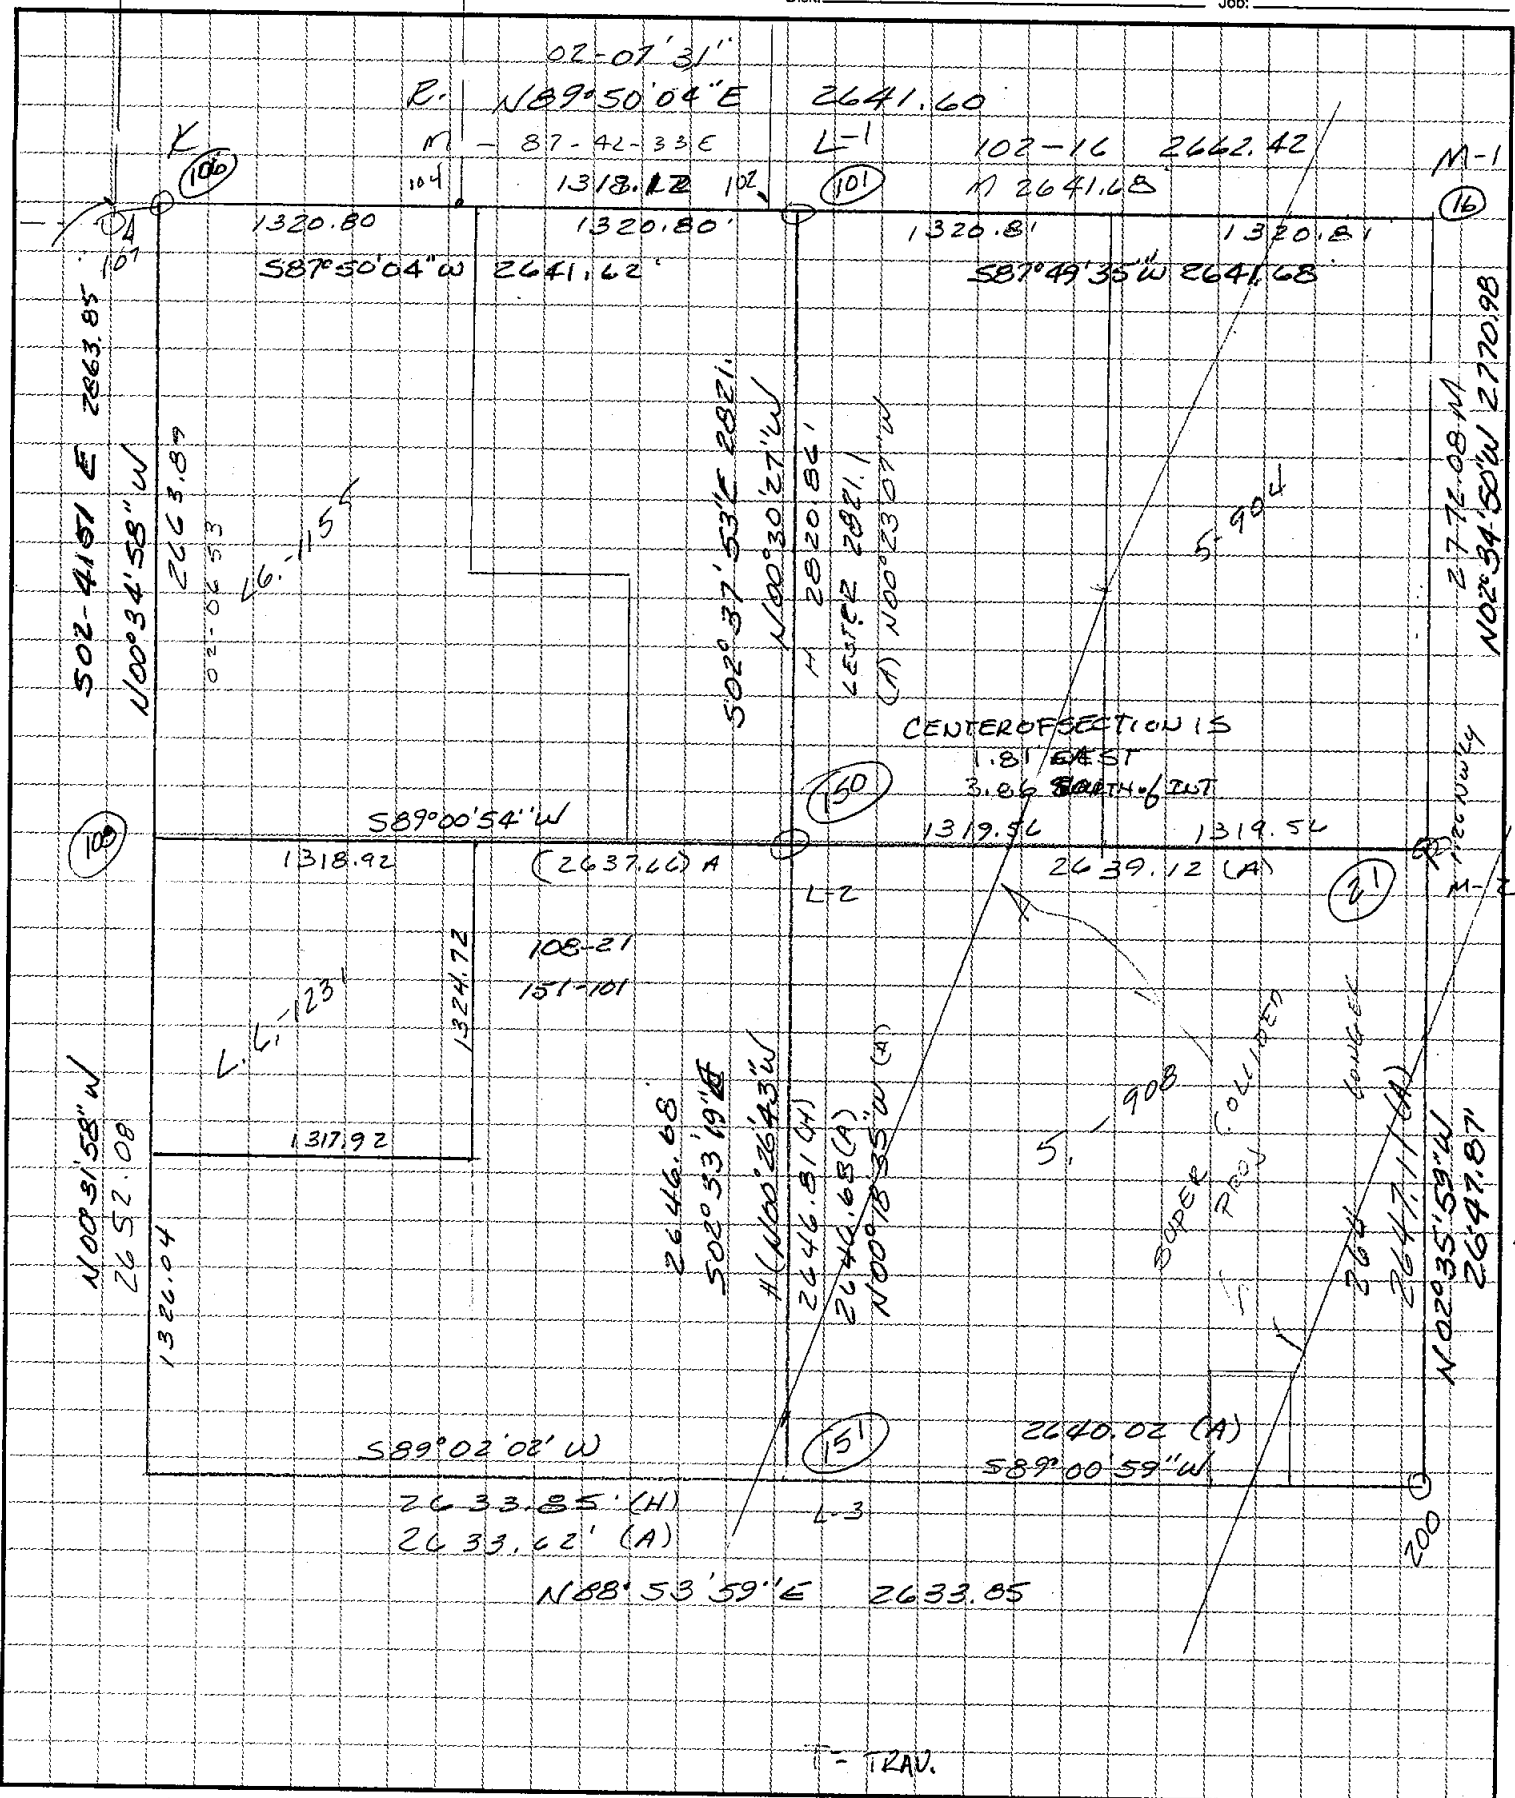 Job:
02-07'31"
R. N89°50'04"E 2641.60
M - 87-42-33E L-1 102-16 2662.42 M-1
K 106 104 1318.12 102 101 M 2641.68 16
107 1320.80 1320.80' 1320.81 1320.81
S87°50'04"W 2641.62' S87°49'35"W 2641.68'
S02-4151 E 2863.85
N00°34'58"W
2663.89
02-0653
L6.-1154
S02°37'53"E 2821.
N00°30'27"W
H 2820.86'
LESTER 2821.1
(A) N00°23'07"W
5-904
2772.08 M
N02°34'50"W 2770.98
CENTER OF SECTION IS
1.81' EAST
3.86 of INT
150
108
S89°00'54"W
1319.56 1319.56
1318.92 (2637.66) A
2639.12 (A)
L-2
21
M-2
108-21
151-101
1324.72
L.6,-123'
1317.92
N00°31'58"W
2652.08
1326.04
2646.68'
S02°33'19"E
H(N00°26'43"W
2646.81 (H)
2646.68 (A)
N00°18'35"W (A)
5. 908
SUPER COLLIDED
PROJ
LONGER
264
2647.11 (A)
N02°35'59"W
2647.87'
S89°02'02'W
151
2640.02 (A)
S89°00'59"W
2633.85' (H)
2633.62' (A)
L-3
200
N88°53'59"E 2633.85
T = TRAV.